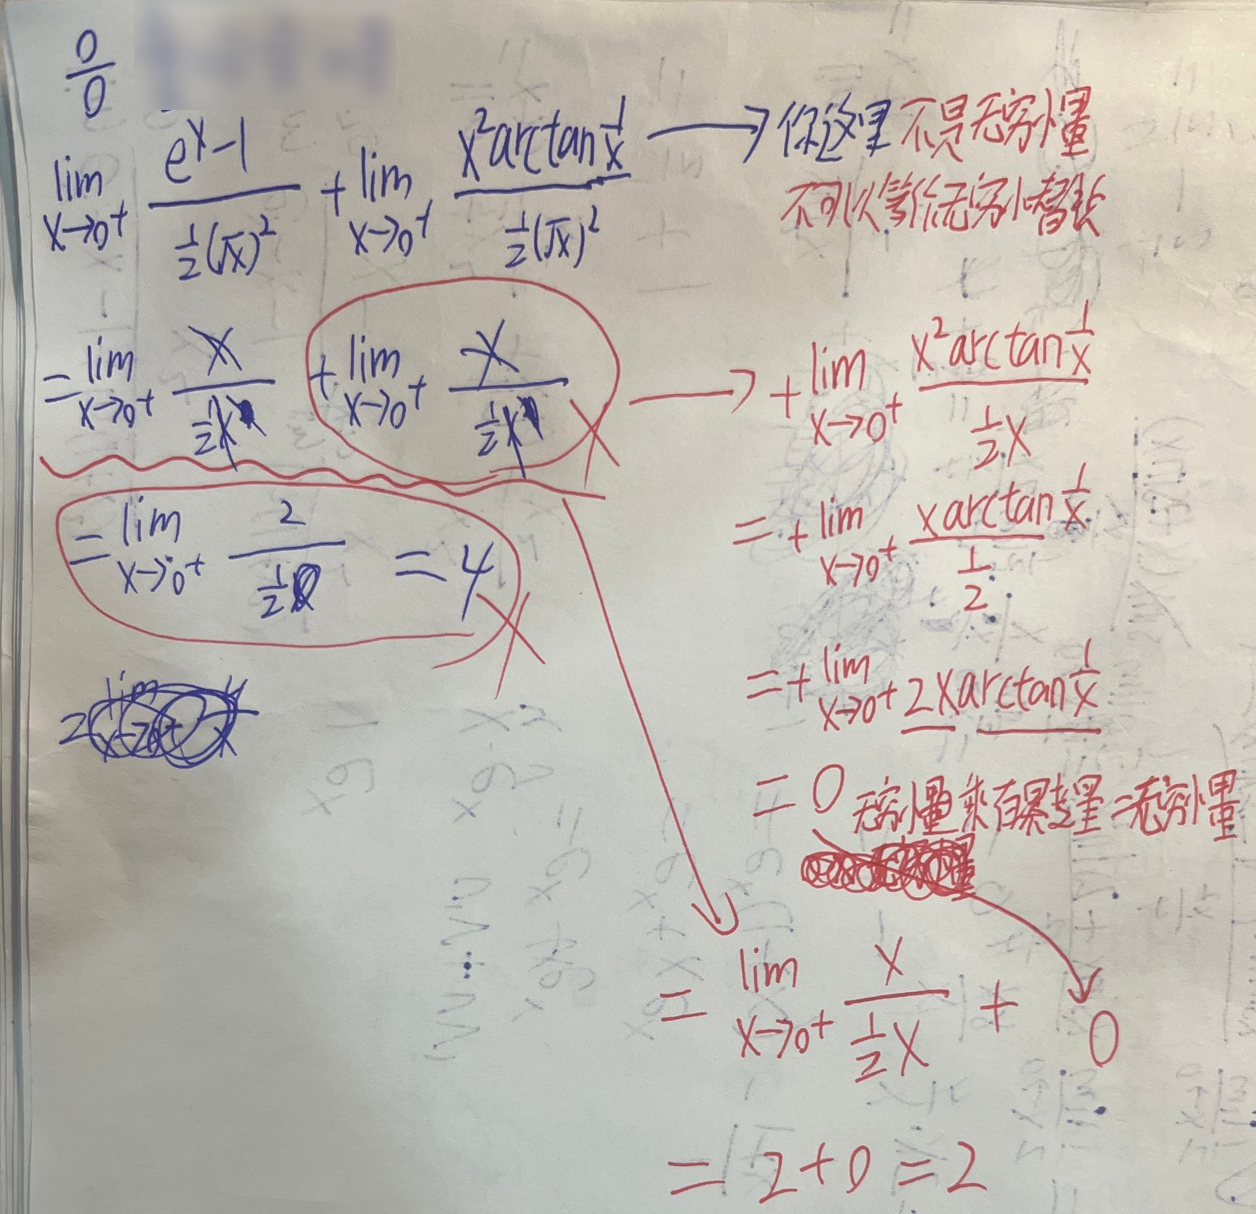 0/0
lim x→0⁺ (eˣ-1)/(½(√x)²) + lim x→0⁺ (x²arctan 1/x)/(½(√x)²) → 你这里不是无穷小量
不可以等价无穷小替代
= lim x→0⁺ x/(½x) + lim x→0⁺ x/(½x) → + lim x→0⁺ (x²arctan 1/x)/(½x)
= lim x→0⁺ 2/(½) = 4
= + lim x→0⁺ (x arctan 1/x)/(½)
= + lim x→0⁺ 2x arctan 1/x
= 0 无穷小量乘有界变量=无穷小量
= lim x→0⁺ x/(½x) + 0
= 2+0 = 2